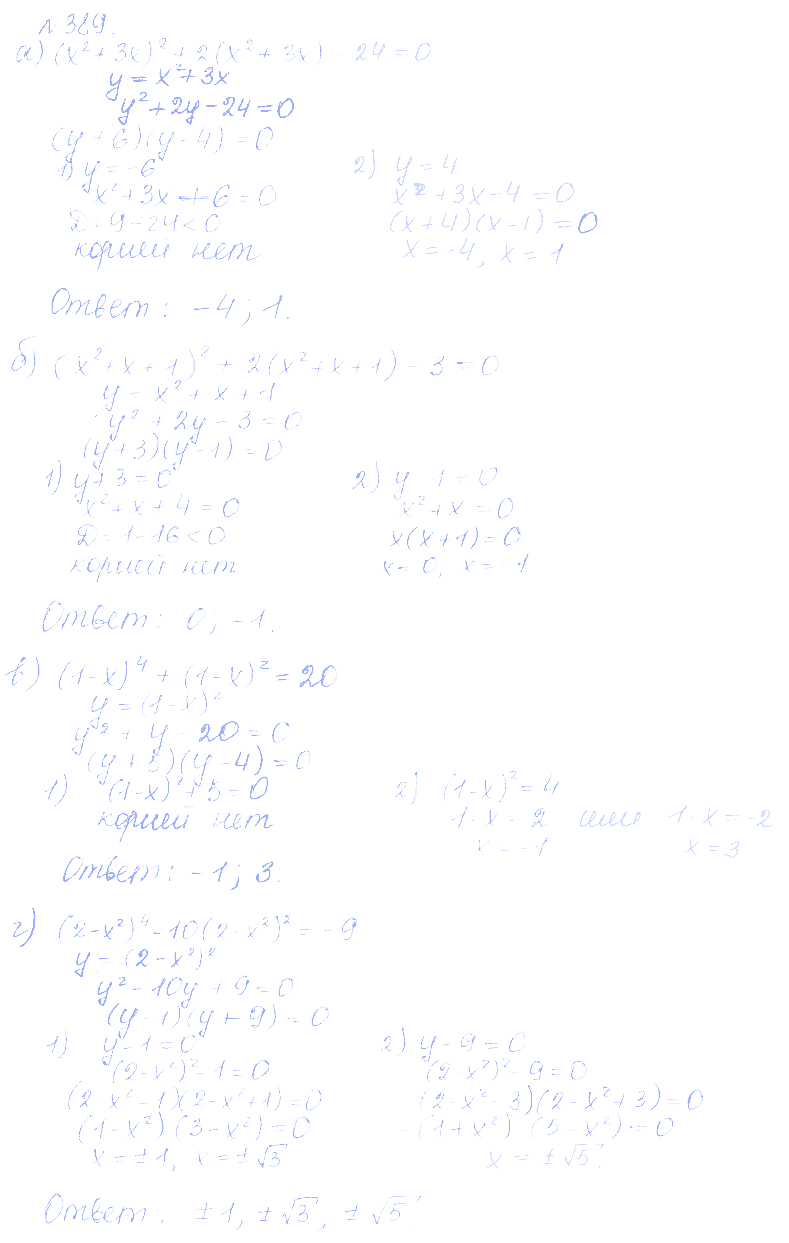 № 389.
а) (x² + 3x)² + 2(x² + 3x) - 24 = 0
y = x² + 3x
y² + 2y - 24 = 0
(y + 6)(y - 4) = 0
1) y = -6
x² + 3x + 6 = 0
D = 9 - 24 < 0
корней нет
2) y = 4
x² + 3x - 4 = 0
(x + 4)(x - 1) = 0
x = -4, x = 1
Ответ: -4; 1.
б) (x² + x + 1)² + 2(x² + x + 1) - 3 = 0
y = x² + x + 1
y² + 2y - 3 = 0
(y + 3)(y - 1) = 0
1) y + 3 = 0
x² + x + 4 = 0
D = 1 - 16 < 0
корней нет
2) y - 1 = 0
x² + x = 0
x(x + 1) = 0
x = 0, x = -1
Ответ: 0; -1.
в) (1 - x)⁴ + (1 - x)² = 20
y = (1 - x)²
y² + y - 20 = 0
(y + 5)(y - 4) = 0
1) (1 - x)² + 5 = 0
корней нет
2) (1 - x)² = 4
1 - x = 2 или 1 - x = -2
x = -1 x = 3
Ответ: -1; 3.
г) (2 - x²)⁴ - 10(2 - x²)² = -9
y = (2 - x²)²
y² - 10y + 9 = 0
(y - 1)(y - 9) = 0
1) y - 1 = 0
(2 - x²)² - 1 = 0
(2 - x² - 1)(2 - x² + 1) = 0
(1 - x²)(3 - x²) = 0
x = ±1, x = ±√3
2) y - 9 = 0
(2 - x²)² - 9 = 0
(2 - x² - 3)(2 - x² + 3) = 0
-(1 + x²)(5 - x²) = 0
x = ±√5.
Ответ: ±1, ±√3, ±√5.